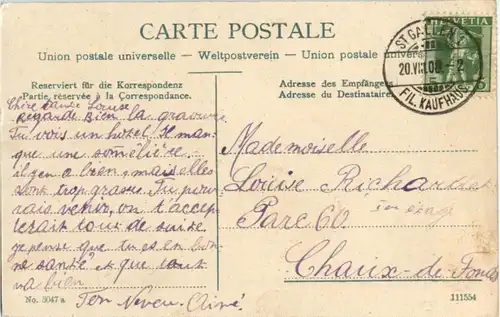 CARTE POSTALE
Union postale universelle – Weltpostverein – Union postale universelle
Reserviert für die Korrespondenz
Partie réservée à la Correspondance.
Adresse des Empfängers
Adresse du Destinataire
HELVETIA
ST. GALLEN
20.VIII.08
FIL. KAUFHAUS
5
Chère tante Louise
Regarde bien la gravure
Tu vois un hotel Il man-
que une somélière
il y en a bien, mais elles
sont trop grasse. Tu pour
rais venir, on t'accep
terait tout de suite.
Je pense que tu es en bon-
ne santé et que tout
va bien
Ton Neveu Aimé
Mademoiselle
Louise Richardet
Parc 60
Chaux-de-Fonds
No. 3047 a
111554